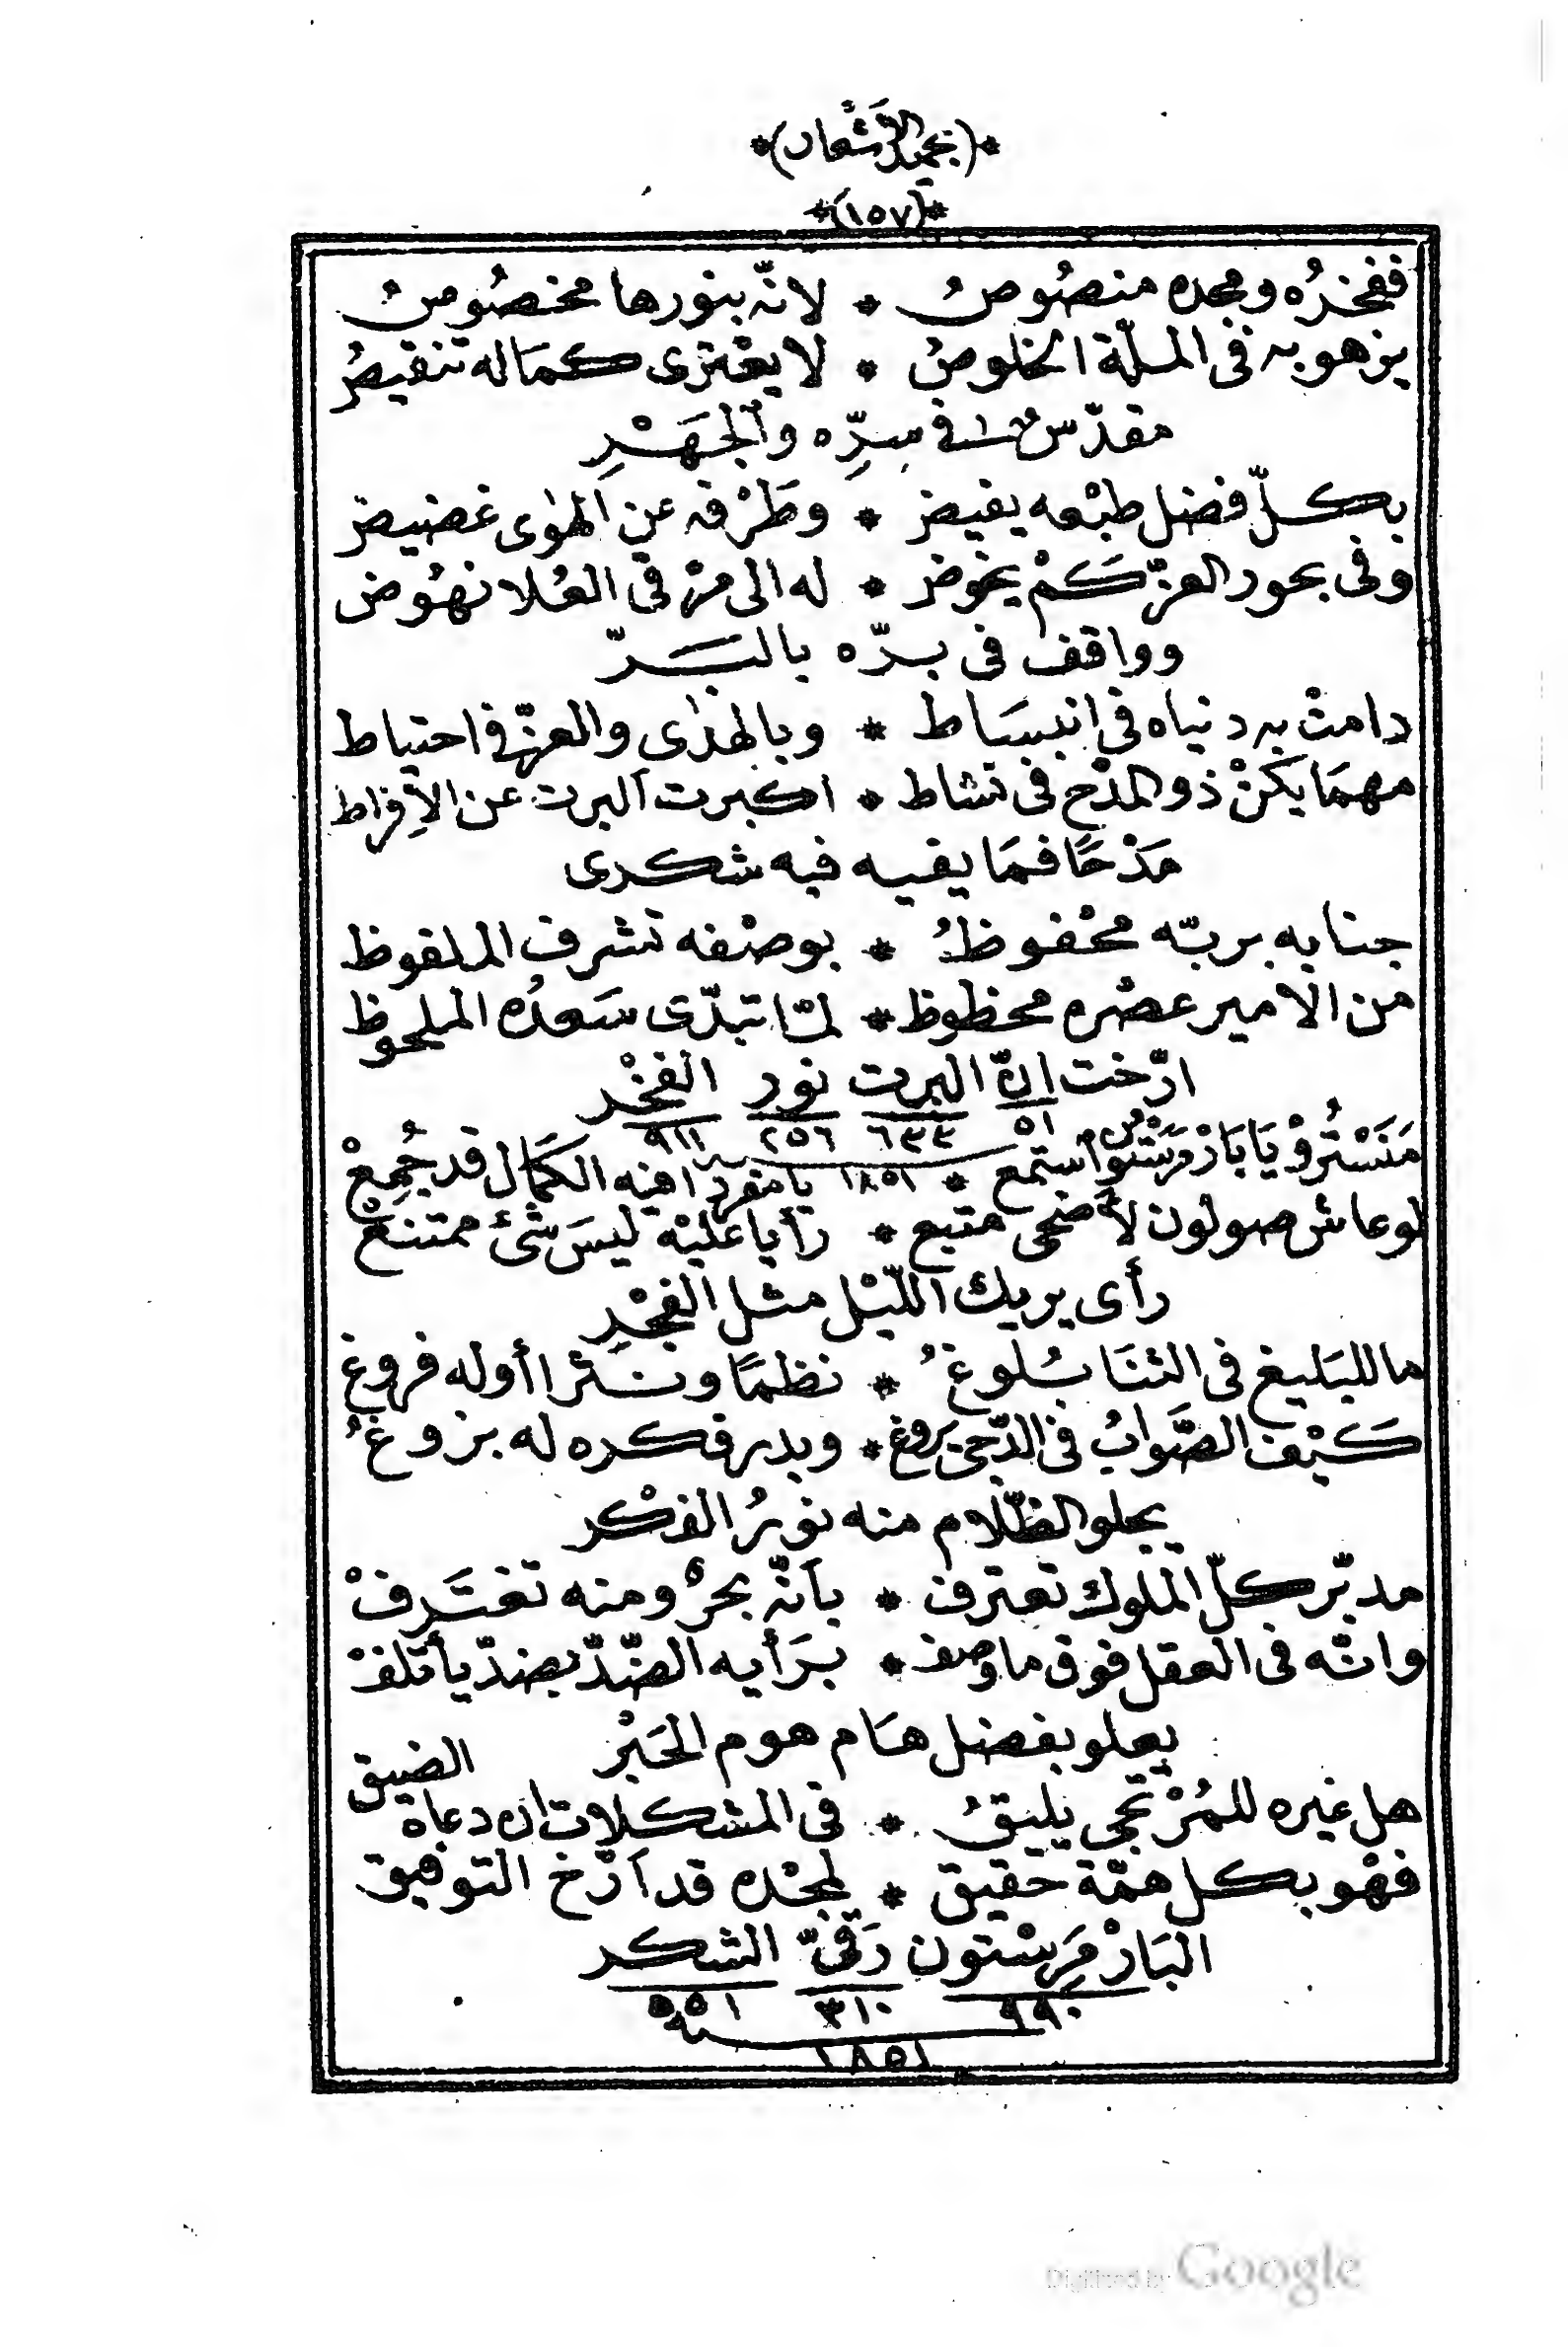 *(بحميد الأشعار)*
*(١٥٧)*
ففخرُه ومجده منصُوصُ * لانّه بنورها مخصُوصُ
يزهو به في الملّة الخلوصُ * لا يعْترى كمَاله تنقيصُ
مقدّسٌ في سِرِّه والجَهْرِ
بكلّ فضل طبْعه يفيض * وطَرْفه عن الهوٰى غضيض
وفى بحور العزّ كَمْ يخوض * له الى مَنْ في العُلا نهُوض
وواقف فى برّه بالبَرّ
دامتْ به دنياه في انبسَاط * وبالهدٰى والعزّ في احتياط
مهمَا يكنْ ذو المدْح فى نشاط * اكبرت البرت عن الاِفراط
مَدْحًا فمَا يفيه فيه شكرى
جنابه بربّه محْفوظُ * بوصْفه تشرف الملفوظ
من الامير عصْره محظوظ * لمّا تبدّى سَعدُه الملحوظ
ارّخت انّ البرت نور الفخْر
٥١ ٦٣٣ ٢٥٦ ٩١١
مَنَسْتُرْوْ يَا بَارْمَرَسْتُونُ استمع * يا مفردا فيه الكمَال قد جُمِعْ
١٨٥١
لو عاش صولون لأضحى متبع * رأيا عليْه ليسَ شئ ممتنعْ
رأى يريك اللّيْل مثل الفجْرِ
ما للبَليغ فى الثنَا بُلوغُ * نظمًا ونثرا أوله فروغ
كَيْف الصَّوابُ فى الدّجى يروغ * وبدر فكره له بزوغُ
يجلو الظّلام منه نورُ الفكْر
مدبّر كلّ الملوك تعترف * بأنّه بحرٌ ومنه تغتَرفْ
وانّه فى العقل فوق ما وصف * برَأيه الضّدّ بضدّ يأتلفْ
يعلو بفضل هَام هوم الحَبْر
هل غيره للمُرْتجى يليقُ * فى المشكلات ان دعاه الضيق
فهْو بكل همّة حقيق * لمجْده قد اَرّخ التوفيق
البَارْمَرسْتون رَقىّ الشكر
٩٩٠ ٣١٠ ٥٥١
سنة
١٨٥١
Digitized by Google